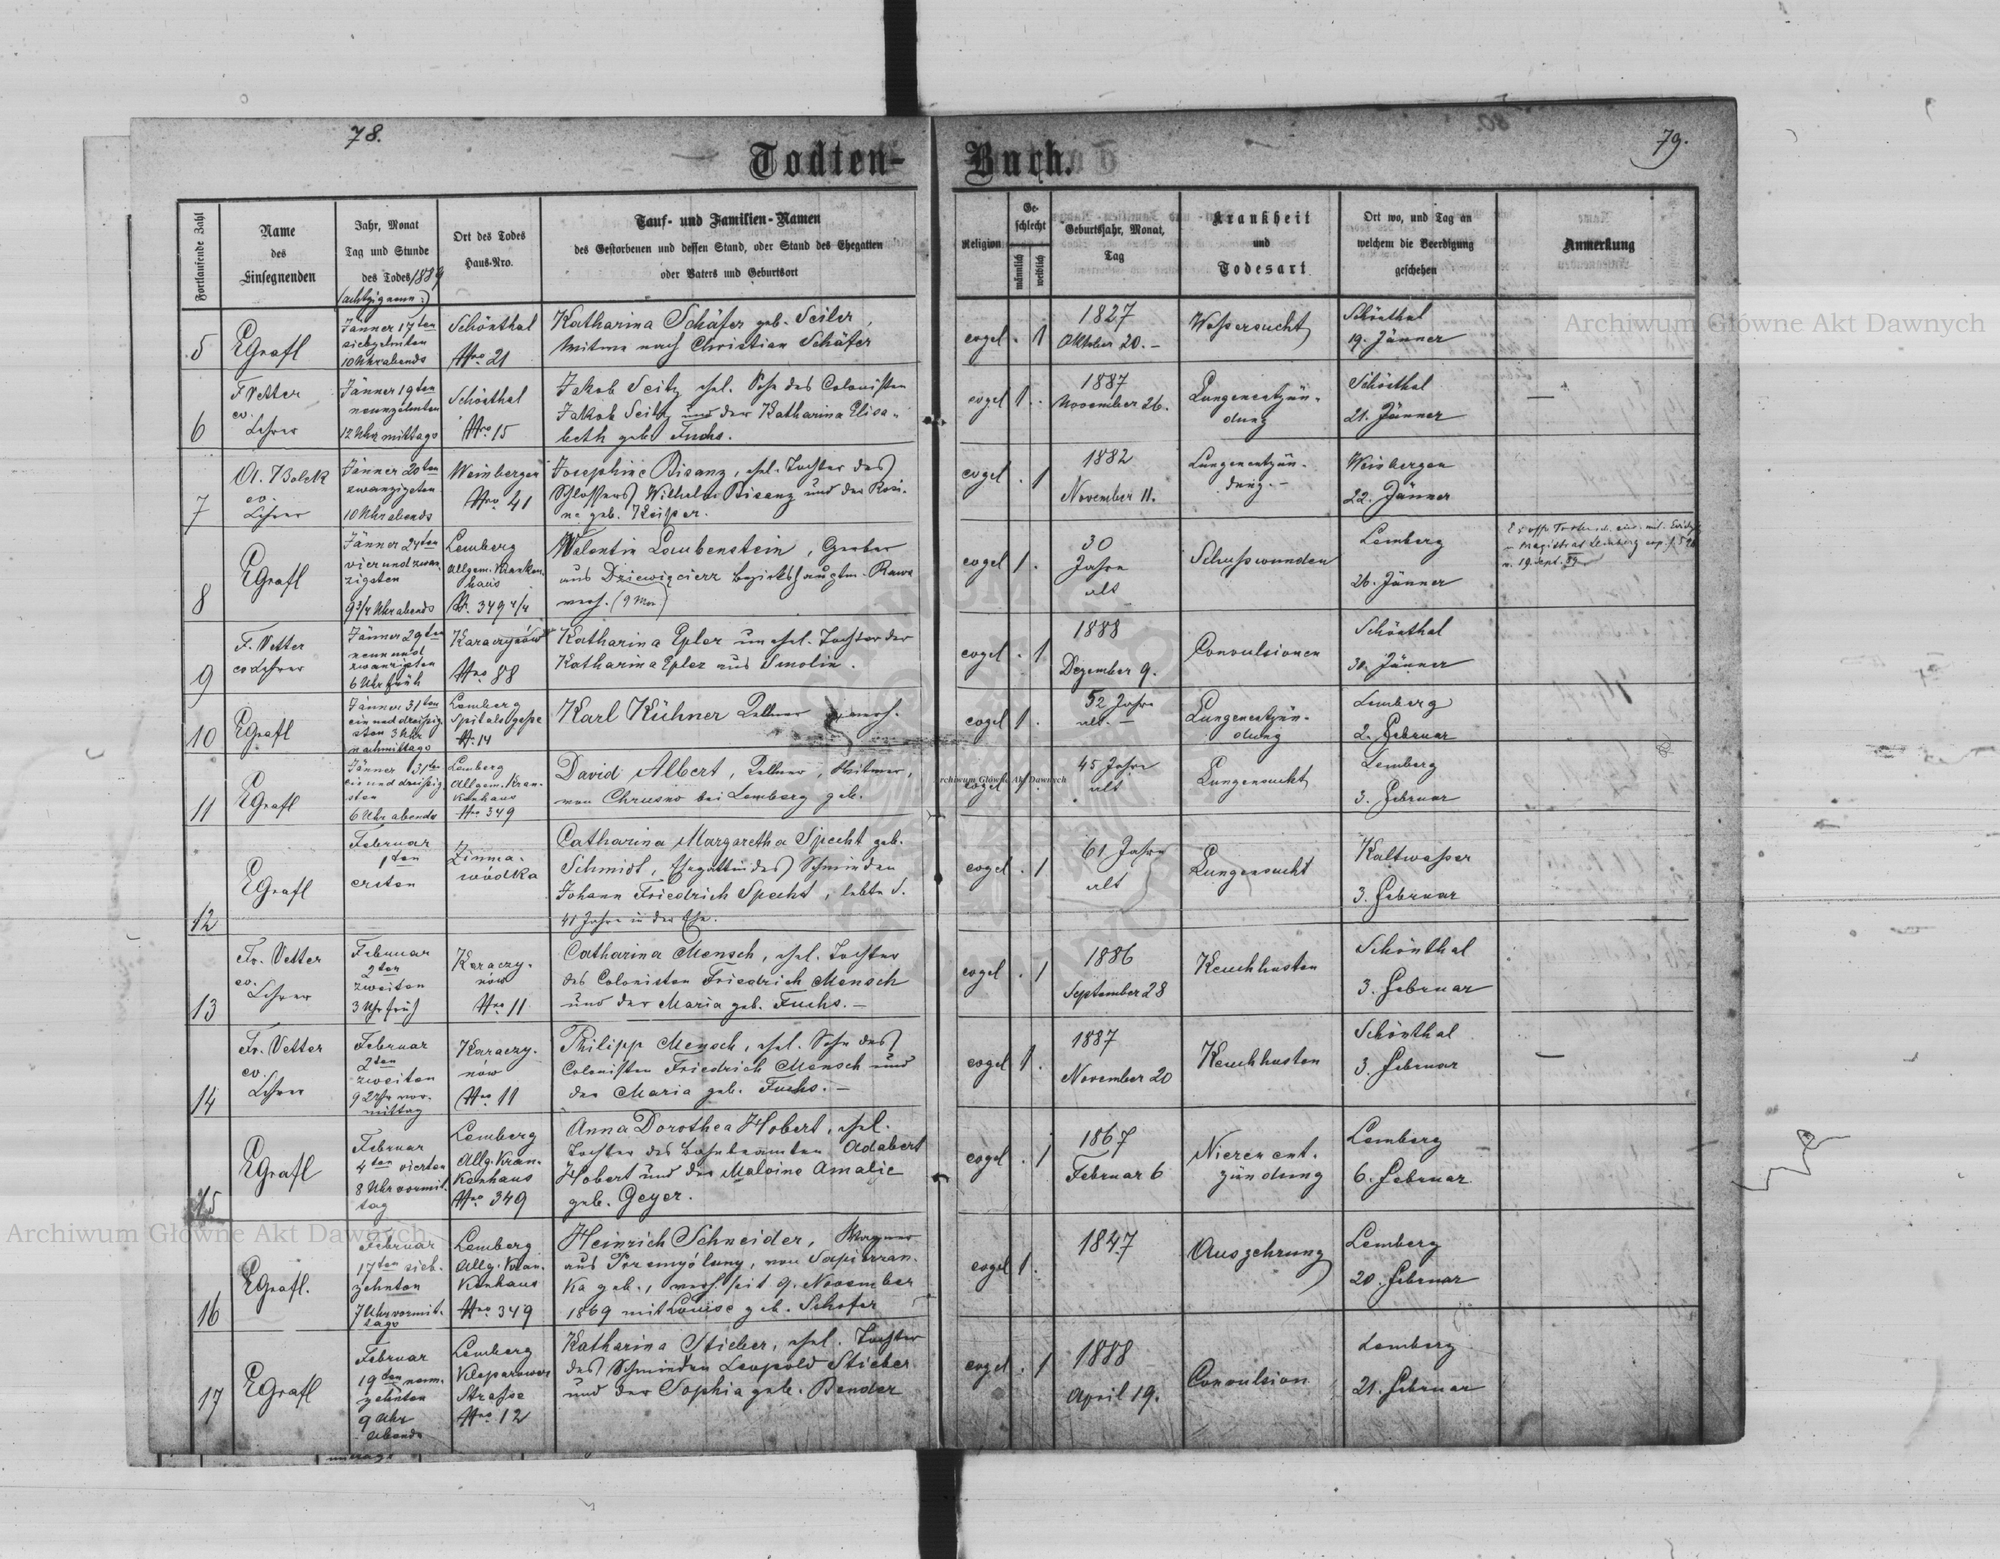 78.
79.
Todten-
Buch.
Fortlaufende Zahl
Name
des
Einsegnenden
Jahr, Monat
Tag und Stunde
des Todes 1889
Ort des Todes
Haus-Nro.
Tauf- und Familien-Namen
des Gestorbenen und dessen Stand, oder Stand des Ehegatten
oder Vaters und Geburtsort
Religion
Ge-
schlecht
männlich
weiblich
Geburtsjahr, Monat,
Tag
Krankheit
und
Todesart
Ort wo, und Tag an
welchem die Beerdigung
geschehen
Anmerkung
5
EGrafl
Jänner 17ten
siebzehnten
10 Uhr abends
Schönthal
Nro 21
Katharina Schäfer geb. Seiler,
Witwe nach Christian Schäfer
evgel . 1
1827
Oktober 20. –
Wassersucht
Schönthal
19. Jänner
6
F Vetter
ev.
Lehrer
Jänner 19ten
neunzehnten
12 Uhr mittags
Schönthal
Nro 15
Jakob Seitz, ehel. Sohn des Colonisten
Jakob Seitz und der Katharina Elisa-
beth geb. Fuchs.
evgel 1 .
1887
November 26.
Lungenentzün-
dung
Schönthal
21. Jänner
7
ev.
Lehrer
Jänner 20ten
zwanzigsten
10 Uhr abends
Weinbergen
Nro 41
Josephine Bisanz, ehel. Tochter des
Schlossers Wilhelm Bisanz und der Rosi-
na geb. Keiper.
evgel . 1
1882
November 11.
Lungenentzün-
dung. –
Weinbergen
22. Jänner
8
EGrafl
Jänner 24ten
vierundzwan-
zigsten
9 3/4 Uhr abends
Lemberg
Allgem. Kranken
haus
Nr. 349 4/4
Valentin Laubenstein, Gerber
aus Dziewięcierz Bezirkshauptm. Rawa
verh. (9 Mon.)
evgel 1 .
30
Jahre
alt
Schusswunden
Lemberg
26. Jänner
9
F. Vetter
ev Lehrer
Jänner 29ten
neunund
zwanzigsten
6 Uhr früh
Karaczynów
Nro 88
Katharina Epler unehel. Tochter der
Katharina Epler aus Smolin.
evgel . 1
1888
Dezember 9.
Convulsionen
Schönthal
30. Jänner
10
EGrafl
Jänner 31ten
einunddreißig
sten 3 Uhr
nachmittags
Lemberg
Spitalsgasse
N. 14
Karl Kühner Zellner verh.
evgel 1 .
52 Jahre
alt. –
Lungenentzün-
dung
Lemberg
2. Februar
11
EGrafl
Jänner 31ten
einunddreißig
sten
6 Uhr abends
Lemberg
Allgem. Kran-
kenhaus
Nro 349
David Albert, Zellner, Witwer,
von Chrusno bei Lemberg geb.
evgel 1 .
45 Jahre
alt
Lungensucht
Lemberg
3. Februar
12
EGrafl
Februar
1ten
ersten
Zimna-
wodka
Catharina Margaretha Specht geb.
Schmidt, Ehegattin des Schmieden
Johann Friedrich Specht, lebte s.
41 Jahre in der Ehe.
evgel . 1
61 Jahre
alt
Lungensucht
Kaltwasser
3. Februar
13
Fr. Vetter
ev.
Lehrer
Februar
2ten
zweiten
3 Uhr früh
Karaczy-
nów
Nro 11
Catharina Mensch, ehel. Tochter
des Colonisten Friedrich Mensch
und der Maria geb. Fuchs. –
evgel . 1
1886
September 28
Keuchhusten
Schönthal
3. Februar
14
Fr. Vetter
ev.
Lehrer
Februar
2ten
zweiten
9 Uhr vor-
mittag
Karaczy-
nów
Nro 11
Philipp Mensch, ehel. Sohn des
Colonisten Friedrich Mensch und
der Maria geb. Fuchs. –
evgel 1 .
1887
November 20
Keuchhusten
Schönthal
3. Februar
15
EGrafl
Februar
4ten vierten
8 Uhr vormit-
tag
Lemberg
Allg. Kran-
kenhaus
Nro 349
Anna Dorothea Hobert, ehel.
Tochter des Bahnbeamten Adabert
Hobert und der Malvine Amalie
geb. Geyer.
evgel . 1
1867
Februar 6
Nierenent-
zündung
Lemberg
6. Februar
16
EGrafl.
Februar
17ten sieb-
zehnten
7 Uhr vormit-
tags
Lemberg
Allg. Kran-
kenhaus
Nro 349
Heinrich Schneider, Wagner
aus Przemyślany, von Sapieżan-
ka geb., verh. seit 9. November
1869 mit Louise geb. Schofer
evgel 1 .
1847
Auszehrung
Lemberg
20. Februar
17
EGrafl
Februar
19ten neun-
zehnten
9 Uhr
abends
Lemberg
Kleparower
Strasse
Nro 12
Katharina Stieber, ehel. Tochter
des Schmieden Leopold Stieber
und der Sophia geb. Bender
evgel . 1
1888
April 19.
Convulsion
Lemberg
21. Februar
Archiwum Główne Akt Dawnych
Archiwum Główne Akt Dawnych
Archiwum Główne Akt Dawnych